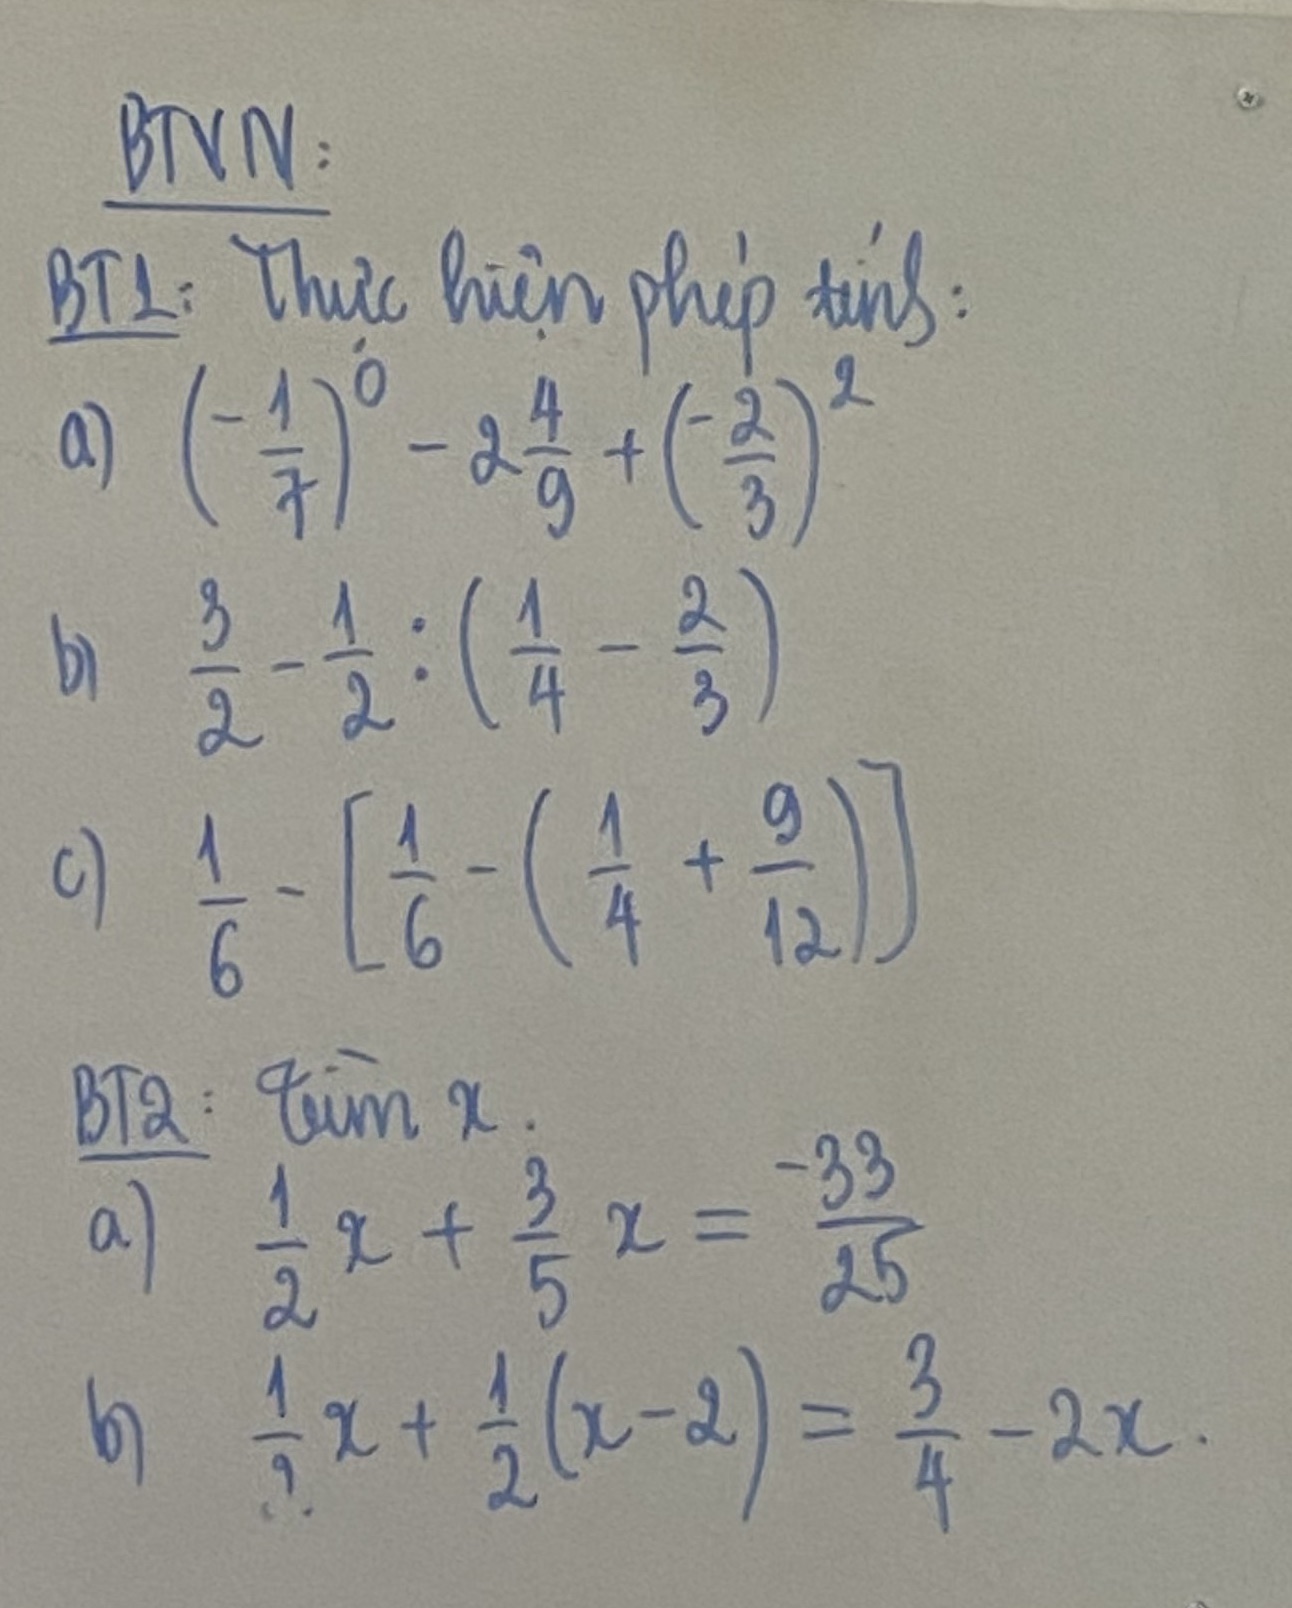 BTVN:
BT1: Thực hiện phép tính:
a) (-1/7)^0 - 2 4/9 + (-2/3)^2
b) 3/2 - 1/2 : (1/4 - 2/3)
c) 1/6 - [1/6 - (1/4 + 9/12)]
BT2: Tìm x.
a) 1/2 x + 3/5 x = -33/25
b) 1/2 x + 1/2 (x - 2) = 3/4 - 2x.